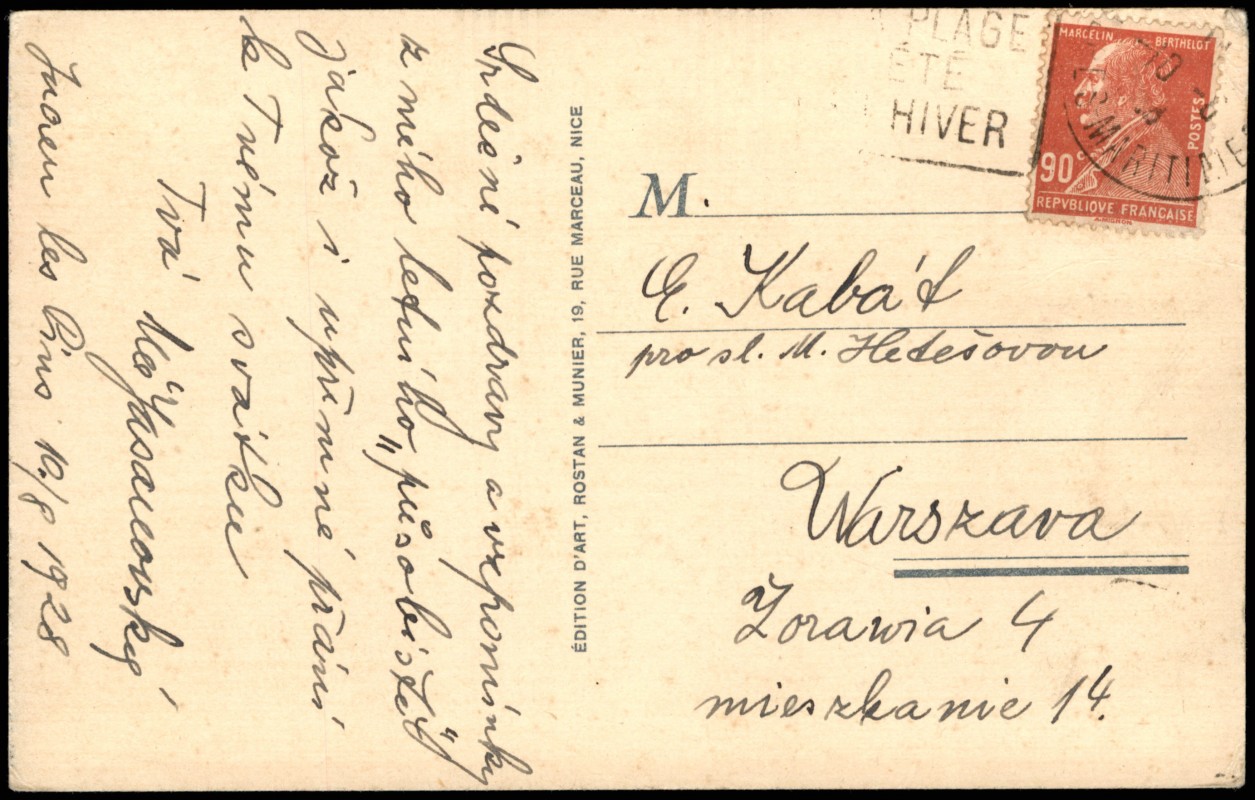 Srdečné pozdravy a vzpomínky
z mého letního „působiště“
jakož i upřímné přání
k Tvému svátku
Tvá
Juan les Pins 10./8 1928
ÉDITION D'ART, ROSTAN & MUNIER, 19, RUE MARCEAU, NICE
PLAGE
ÉTÉ
HIVER
MARCELIN BERTHELOT
POSTES
90c
REPVBLIQVE FRANÇAISE
MARITIMES
M.
E. Kabát
pro sl. M. Hetešovou
Warszava
Żorawia 4
mieszkanie 14.